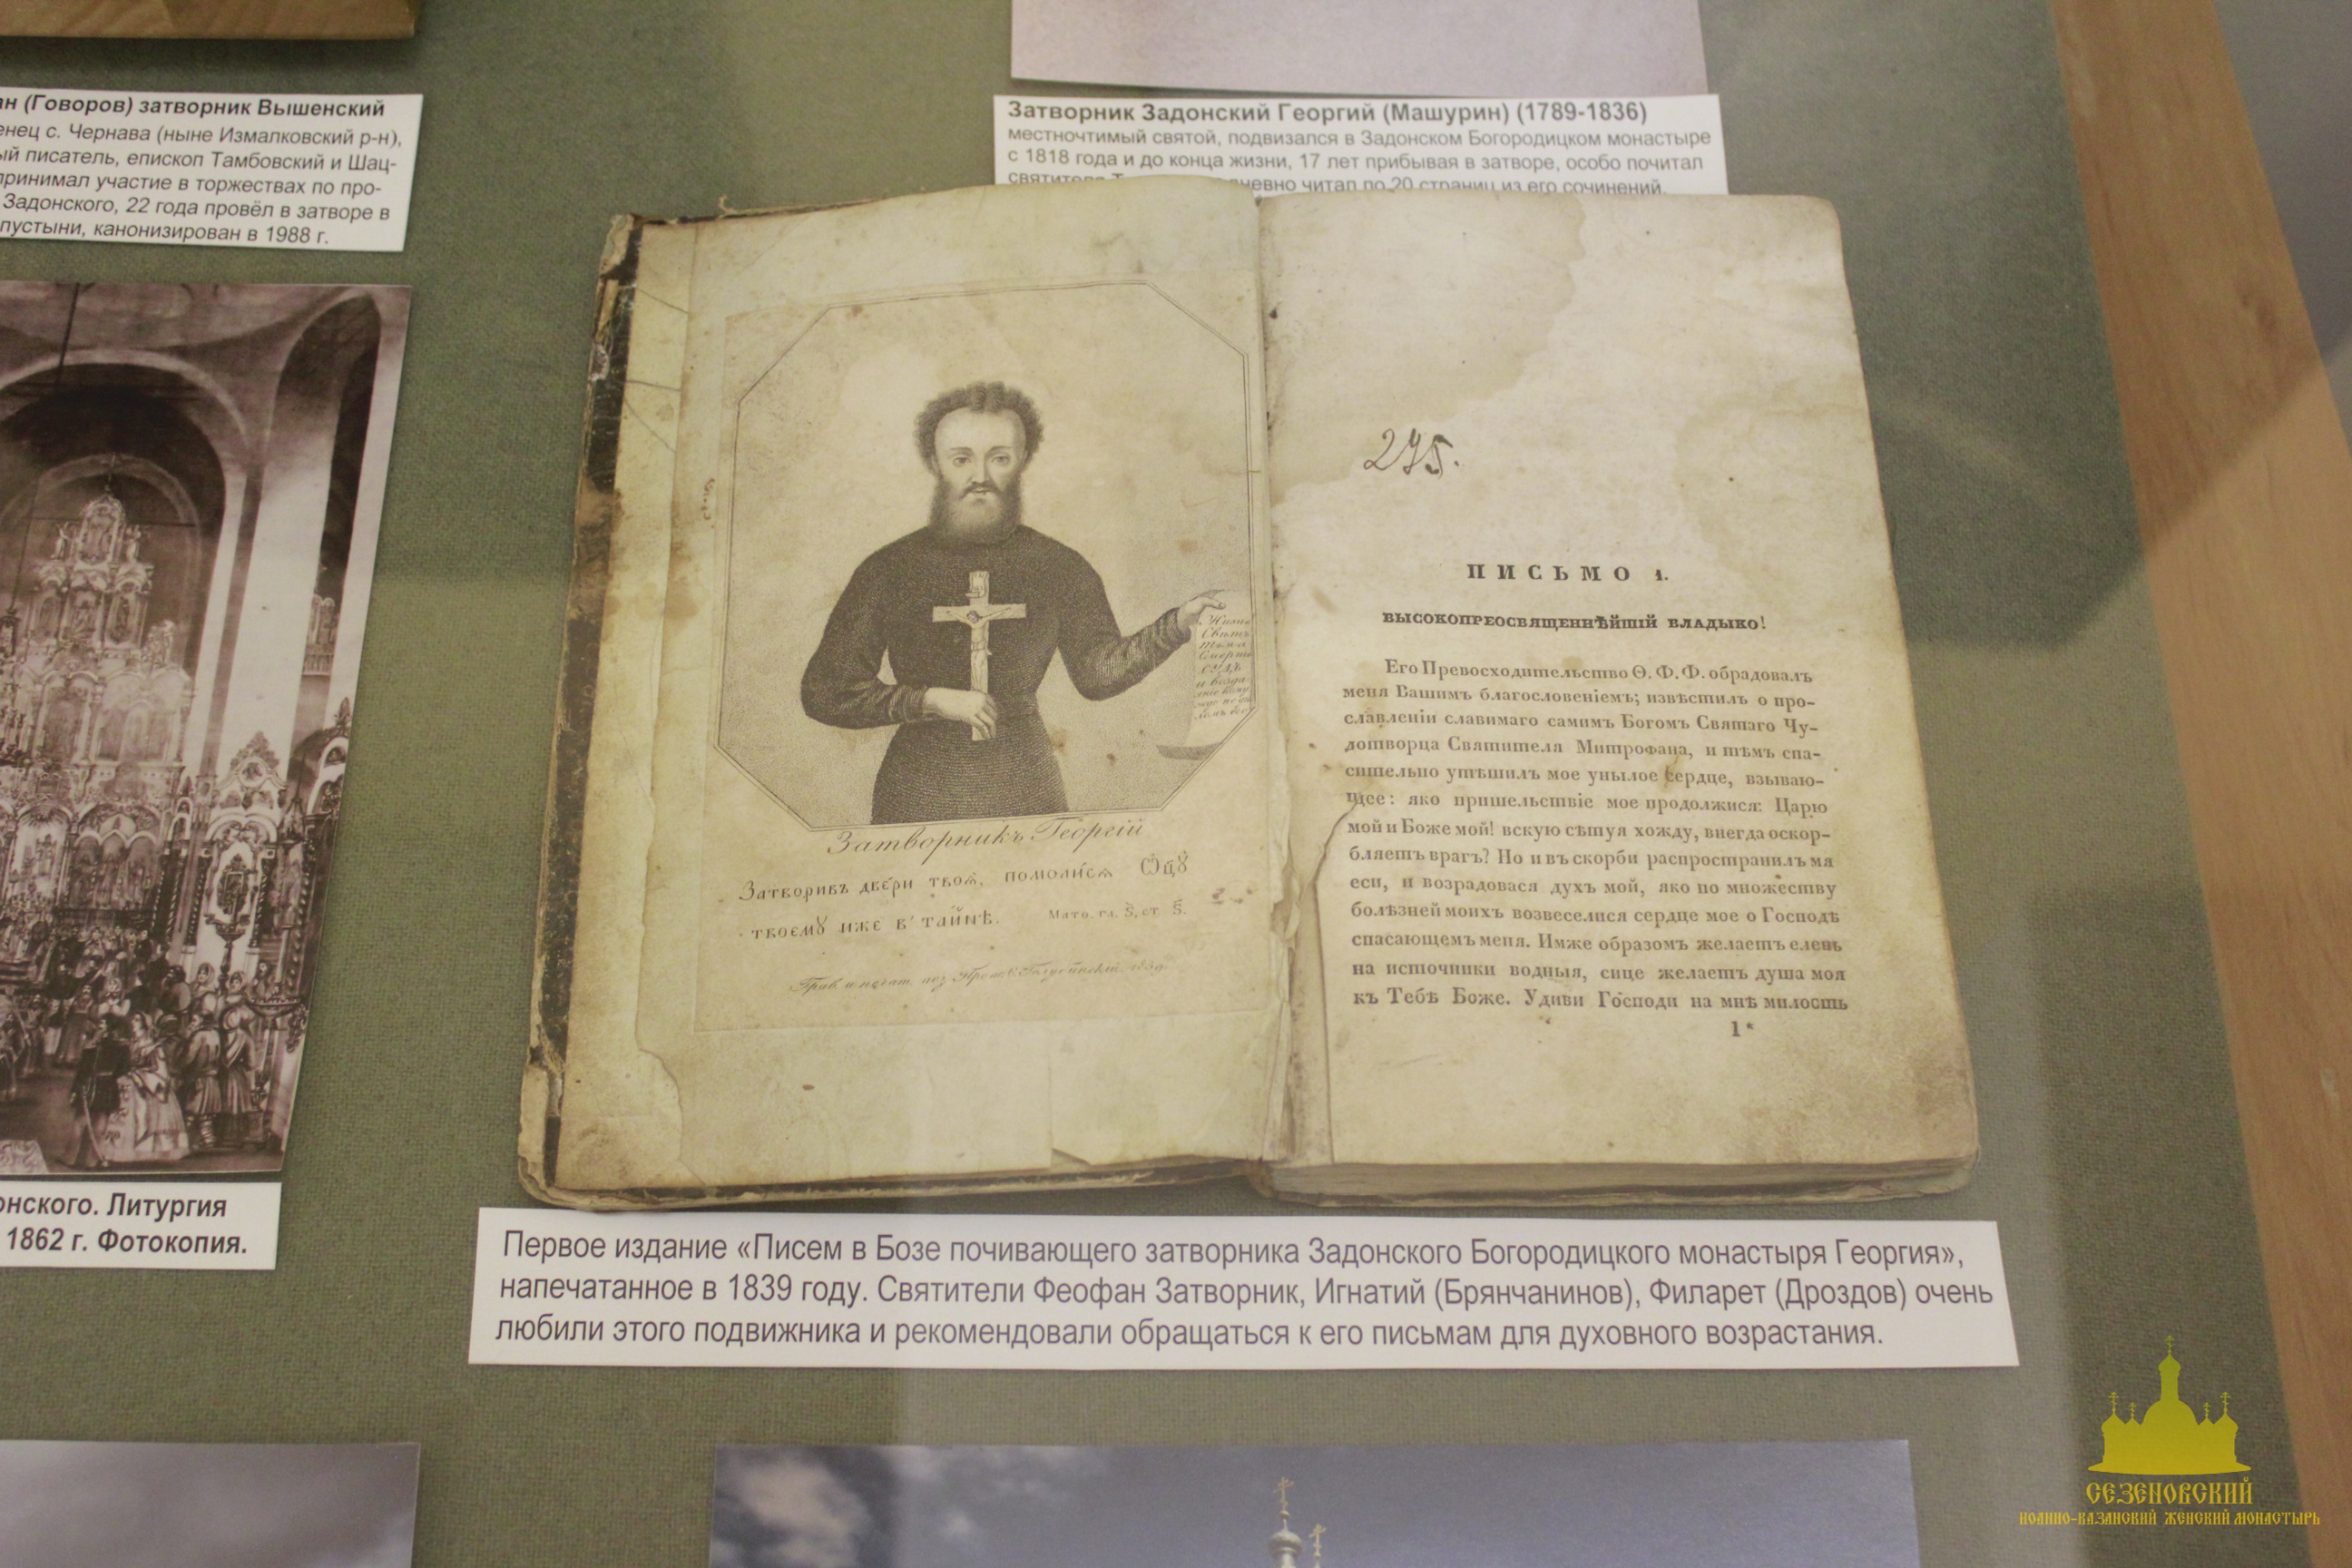 ан (Говоров) затворник Вышенский
енец с. Чернава (ныне Измалковский р-н),
ый писатель, епископ Тамбовский и Шац-
принимал участие в торжествах по про-
Задонского, 22 года провёл в затворе в
пустыни, канонизирован в 1988 г.
Затворник Задонский Георгий (Машурин) (1789-1836)
местночтимый святой, подвизался в Задонском Богородицком монастыре
с 1818 года и до конца жизни, 17 лет прибывая в затворе, особо почитал
святителя дневно читал по 20 страниц из его сочинений.
Жизнь
Свѣтъ
тьма
Смерть
Затворникъ Георгій
Затворивъ двє́ри твоѧ̀, помоли́сѧ Ѻц҃ꙋ̀
твоємꙋ̀ иже в' тайнѣ. Матѳ. гл. ѕ҃, ст. ѕ҃.
275.
ПИСЬМО 1.
ВЫСОКОПРЕОСВЯЩЕННѢЙШІЙ ВЛАДЫКО!
Его Превосходительство Ѳ. Ф. Ф. обрадовалъ
меня Вашимъ благословеніемъ; извѣстилъ о про-
славленіи славимаго самимъ Богомъ Святаго Чу-
дотворца Святителя Митрофана, и тѣмъ спа-
сительно утѣшилъ мое унылое сердце, взываю-
щее: яко пришельствіе мое продолжися: Царю
мой и Боже мой! вскую сѣтуя хожду, внегда оскор-
бляетъ врагъ? Но и въ скорби распространилъ мя
еси, и возрадовася духъ мой, яко по множеству
болѣзней моихъ возвеселися сердце мое о Господѣ
спасающемъ меня. Имже образомъ желаетъ елень
на источники водныя, сице желаетъ душа моя
къ Тебѣ Боже. Удиви Господи на мнѣ милость
1*
онского. Литургия
1862 г. Фотокопия.
Первое издание «Писем в Бозе почивающего затворника Задонского Богородицкого монастыря Георгия»,
напечатанное в 1839 году. Святители Феофан Затворник, Игнатий (Брянчанинов), Филарет (Дроздов) очень
любили этого подвижника и рекомендовали обращаться к его письмам для духовного возрастания.
СЕЗЕНОВСКИЙ
ИОАННО-КАЗАНСКИЙ ЖЕНСКИЙ МОНАСТЫРЬ